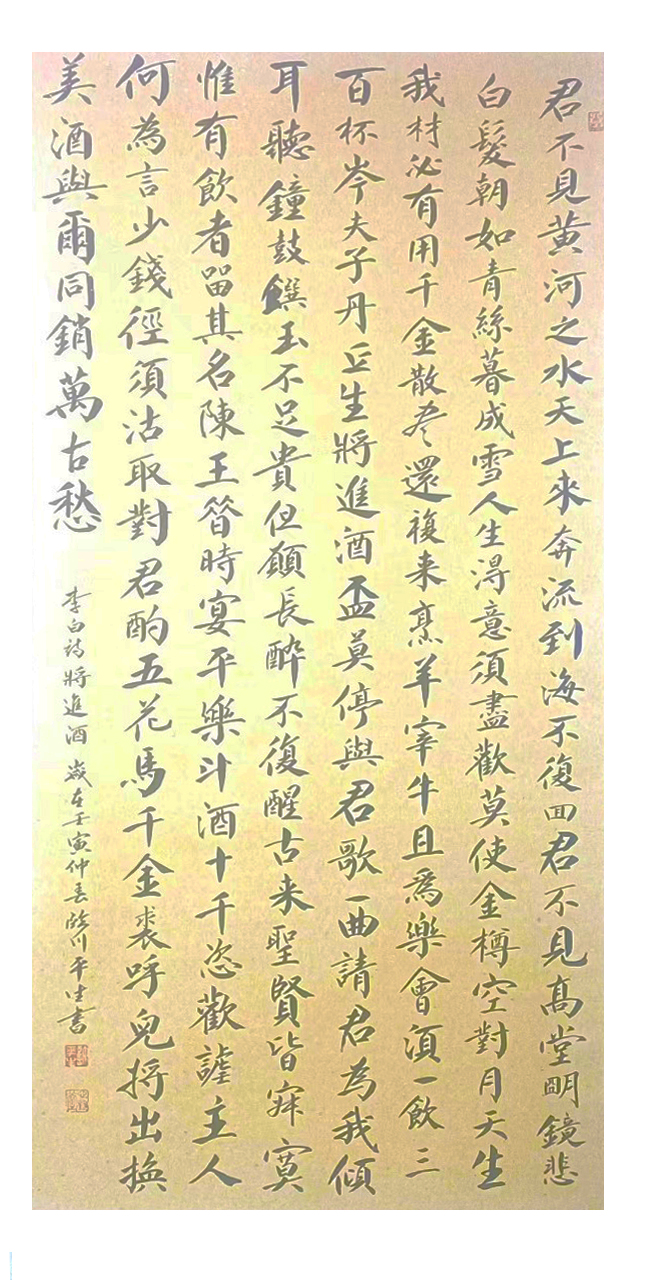 君不見黄河之水天上來奔流到海不復回君不見高堂明鏡悲
白髮朝如青絲暮成雪人生得意須盡歡莫使金樽空對月天生
我材必有用千金散盡還複来烹羊宰牛且為樂會須一飲三
百杯岑夫子丹丘生將進酒盃莫停與君歌一曲請君為我傾
耳聽鐘鼓饌玉不足貴但願長醉不復醒古来聖賢皆寂寞
惟有飲者留其名陳王昔時宴平樂斗酒十千恣歡謔主人
何為言少錢徑須沽取對君酌五花馬千金裘呼兒將出換
美酒與爾同銷萬古愁
李白詩將進酒 歲在壬寅仲春 川平 書